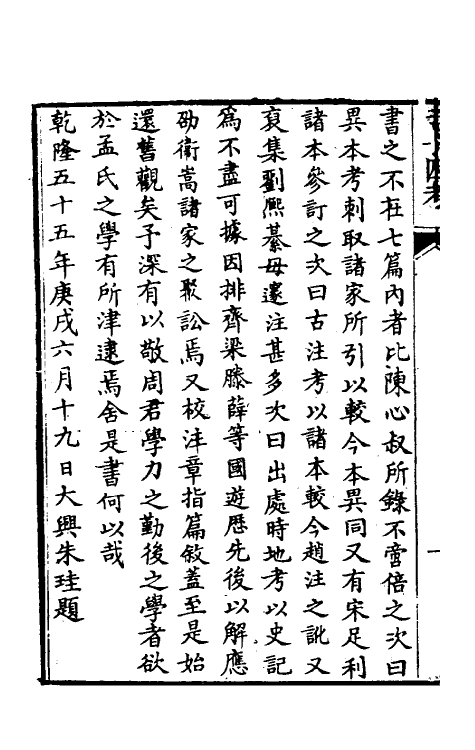 書之不在七篇內者比陳心叔所錄不啻倍之次曰
異本考刺取諸家所引以較今本異同又有宋足利
諸本參訂之次曰古注考以諸本較今趙注之訛又
裒集劉熙綦毋邃注甚多次曰出處時地考以史記
爲不盡可據因排齊梁滕薛等國遊歷先後以解應
劭衛嵩諸家之聚訟焉又校注章指篇敘蓋至是始
還舊觀矣予深有以敬周君學力之勤後之學者欲
於孟氏之學有所津逮焉舍是書何以哉
乾隆五十五年庚戌六月十九日大興朱珪題